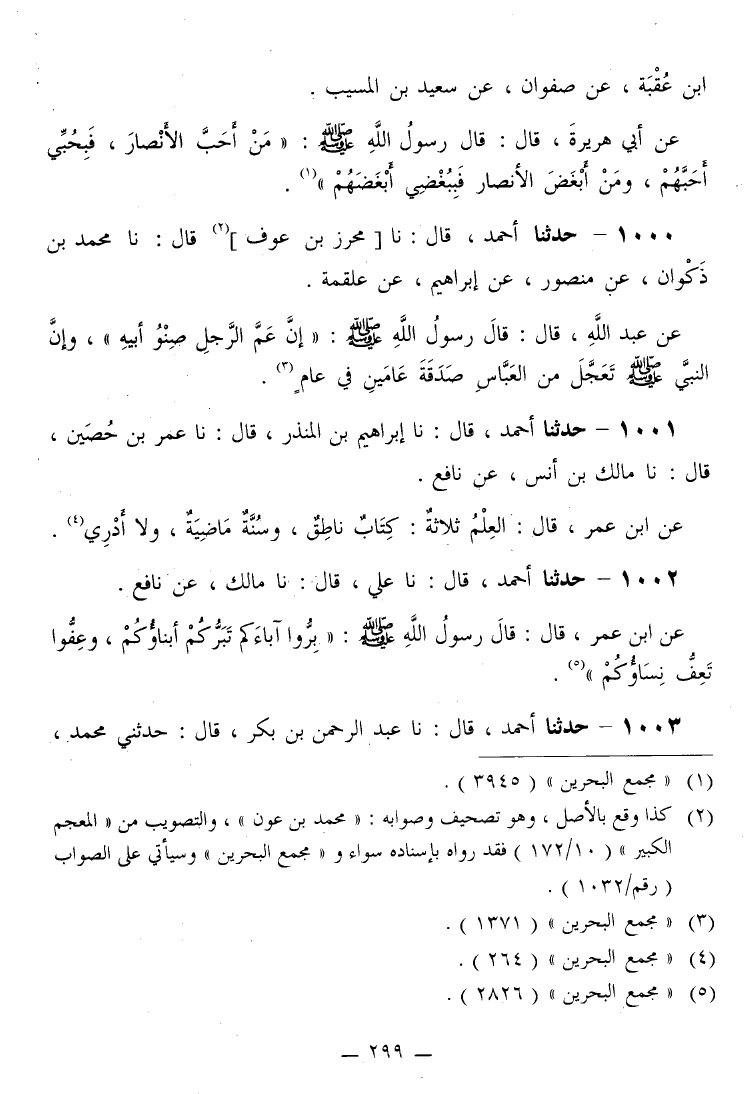 ابن عُقْبَة ، عن صفوان ، عن سعيد بن المسيب .
عن أبي هريرةَ ، قال : قال رسولُ اللَّهِ ﷺ : « مَنْ أَحَبَّ الأَنْصارَ ، فَبِحُبِّي
أَحَبَّهُمْ ، ومَنْ أَبْغَضَ الأنصار فَبِبُغْضِي أَبْغَضَهُمْ »(١) .
١٠٠٠ – حدثنا أحمد ، قال : نا [ محرز بن عوف ](٢) قال : نا محمد بن
ذَكْوان ، عن منصور ، عن إبراهيم ، عن علقمة .
عن عبد اللَّهِ ، قال : قالَ رسولُ اللَّهِ ﷺ : « إنَّ عَمَّ الرَّجلِ صِنْوُ أبيهِ » ، وإنَّ
النبيَّ ﷺ تَعَجَّلَ من العَبَّاسِ صَدَقَةَ عَامَينِ في عام(٣) .
١٠٠١ – حدثنا أحمد ، قال : نا إبراهيم بن المنذر ، قال : نا عمر بن حُصَين ،
قال : نا مالك بن أنس ، عن نافع .
عن ابن عمر ، قال : العِلْمُ ثلاثةٌ : كِتَابٌ ناطِقٌ ، وسُنَّةٌ مَاضِيَةٌ ، ولا أَدْرِي(٤) .
١٠٠٢ – حدثنا أحمد ، قال : نا علي ، قال : نا مالك ، عن نافع .
عن ابن عمر ، قال : قالَ رسولُ اللَّهِ ﷺ : « بِرُّوا آباءَكم تَبَرُّكُمْ أبناؤُكُمْ ، وعِفُّوا
تَعِفُّ نِسَاؤُكُمْ »(٥) .
١٠٠٣ – حدثنا أحمد ، قال : نا عبد الرحمن بن بكر ، قال : حدثني محمد ،
(١) « مجمع البحرين » ( ٣٩٤٥ ) .
(٢) كذا وقع بالأصل ، وهو تصحيف وصوابه : « محمد بن عون » ، والتصويب من « المعجم
الكبير » ( ١٧٢/١٠ ) فقد رواه بإسناده سواء و « مجمع البحرين » وسيأتي على الصواب
( رقم/١٠٣٢ ) .
(٣) « مجمع البحرين » ( ١٣٧١ ) .
(٤) « مجمع البحرين » ( ٢٦٤ ) .
(٥) « مجمع البحرين » ( ٢٨٢٦ ) .
— ٢٩٩ —